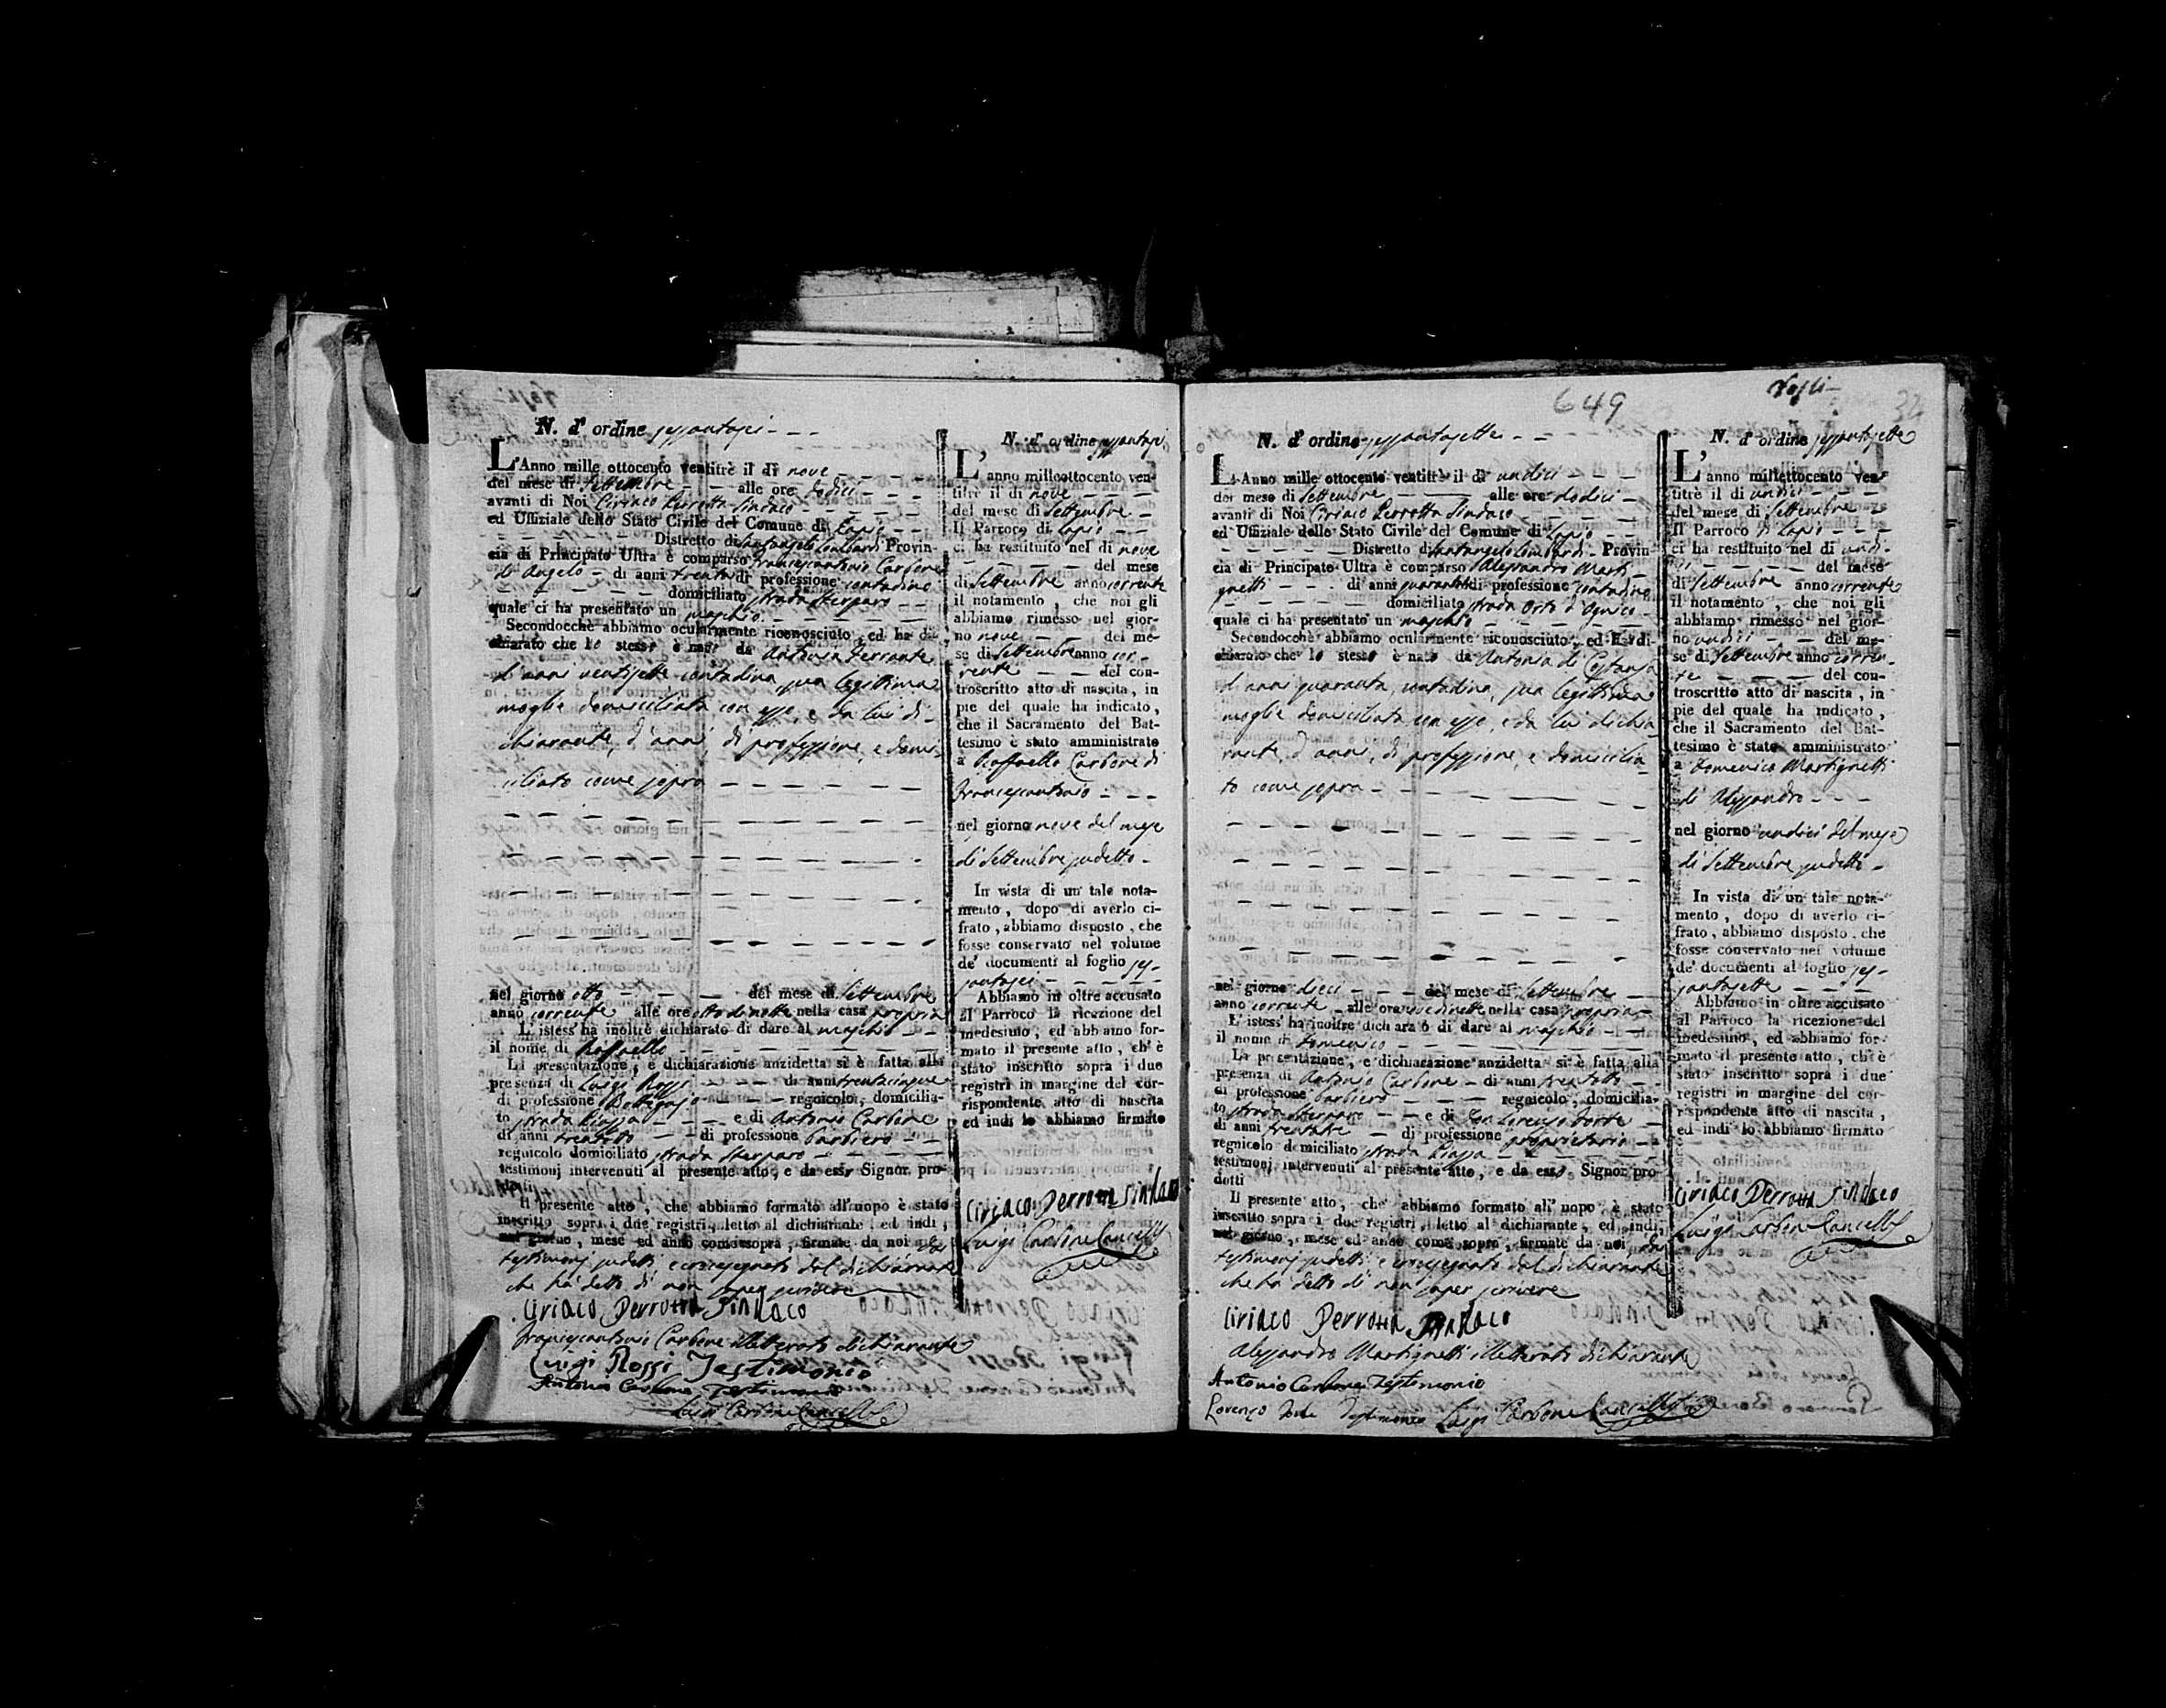 N. d' ordine sessantasei
L'Anno mille ottocento ventitrè il dì nove
del mese di Settembre alle ore dodici
avanti di Noi Ciriaco Perrotta Sindaco
ed Uffiziale dello Stato Civile del Comune di Lapio
Distretto di Santangelo Lombardi Provin-
cia di Principato Ultra è comparso Francescantonio Carbone
di Angelo di anni trenta di professione contadino
domiciliato strada Sterparo
quale ci ha presentato un maschio
Secondocchè abbiamo ocularmente riconosciuto, ed ha di-
chiarato che lo stesso è nato da Antonia Ferrante
d'anni ventisette contadina sua legittima
moglie domiciliata con esso, e da lui di-
chiarante, d'anni, di professione, e domi-
ciliato come sopra
nel giorno otto del mese di Settembre
anno corrente alle ore otto di notte nella casa propria
L'istess' ha inoltre dichiarato di dare al maschio
il nome di Raffaello
La presentazione, e dichiarazione anzidetta si è fatta alla
presenza di Luigi Rossi di anni trentacinque
di professione Bottegajo regnicolo, domicilia-
to strada Piazza e di Antonio Carbone
di anni trentotto di professione barbiero
regnicolo domiciliato strada Sterparo
testimonj intervenuti al presente atto, e da esso Signor pro-
dotti
Il presente atto, che abbiamo formato all'uopo è stato
inscritto sopra i due registri, letto al dichiarante, ed indi,
nel giorno, mese ed anno come sopra, firmate da noi, dai
testimonj sudetti, e crocesegnato dal dichiarante
che ha detto di non saper scrivere
Ciriaco Perrotta Sindaco
Francescantonio Carbone illetterato dichiarante
Luigi Rossi Testimonio
Antonio Carbone Testimonio
Luigi Carbone Cancell
N. d' ordine sessantasei
L' anno milleottocento ven-
titrè il dì nove
del mese di Settembre
Il Parroco di Lapio
ci ha restituito nel dì nove
del mese
di Settembre anno corrente
il notamento, che noi gli
abbiamo rimesso nel gior-
no nove del me-
se di Settembre anno cor-
rente del con-
troscritto atto di nascita, in
pie del quale ha indicato,
che il Sacramento del Bat-
tesimo è stato amministrato
a Raffaello Carbone di
Francescantonio
nel giorno nove del mese
di Settembre sudetto
In vista di un tale nota-
mento, dopo di averlo ci-
frato, abbiamo disposto, che
fosse conservato nel volume
de' documenti al foglio ses-
santasei
Abbiamo in oltre accusato
al Parroco la ricezione del
medesimo, ed abbiamo for-
mato il presente atto, ch'è
stato inscritto sopra i due
registri in margine del cor-
rispondente atto di nascita
ed indi lo abbiamo firmato
Ciriaco Perrotta Sindaco
Luigi Carbone Cancell
649
32
N. d' ordine sessantasette
L'Anno mille ottocento ventitrè il dì undici
del mese di Settembre alle ore dodici
avanti di Noi Ciriaco Perrotta Sindaco
ed Uffiziale dello Stato Civile del Comune di Lapio
Distretto di Santangelo Lombardi Provin-
cia di Principato Ultra è comparso Alessandro Marti-
gnetti di anni quarantotto di professione contadino
domiciliato strada Orto d'Ognico
quale ci ha presentato un maschio
Secondocchè abbiamo ocularmente riconosciuto, ed ha di-
chiarato che lo stesso è nato da Antonia di Costanza
d'anni quaranta, contadina, sua legittima
moglie domiciliata con esso, e da lui dichia-
rante, d'anni, di professione, e domicilia-
to come sopra
nel giorno dieci del mese di Settembre
anno corrente alle ore nove di notte nella casa propria
L'istess' ha inoltre dichiarato di dare al maschio
il nome di Domenico
La presentazione, e dichiarazione anzidetta si è fatta alla
presenza di Antonio Carbone di anni trentotto
di professione barbiero regnicolo, domicilia-
to strada Sterparo e di Don Lorenzo Forte
di anni trentatre di professione proprietario
regnicolo domiciliato strada Piazza
testimonj intervenuti al presente atto, e da esso Signor pro-
dotti
Il presente atto, che abbiamo formato all' uopo è stato
inscritto sopra i due registri, letto al dichiarante, ed indi,
nel giorno, mese ed anno come sopra, firmate da noi, dai
testimonj sudetti, e crocesegnato dal dichiarante
che ha detto di non saper scrivere
Ciriaco Perrotta Sindaco
Alessandro Martignetti illetterato dichiarante
Antonio Carbone Testimonio
Lorenzo Forte Testimonio Luigi Carbone Cancell
N. d' ordine sessantasette
L' anno millettocento ven-
titrè il dì undici
del mese di Settembre
Il Parroco di Lapio
ci ha restituito nel dì undi-
ci del mese
di Settembre anno corrente
il notamento, che noi gli
abbiamo rimesso nel gior-
no undici del me-
se di Settembre anno corren-
te del con-
troscritto atto di nascita, in
pie del quale ha indicato,
che il Sacramento del Bat-
tesimo è stato amministrato
a Domenico Martignetti
di Alessandro
nel giorno undici del mese
di Settembre sudetto
In vista di un tale nota-
mento, dopo di averlo ci-
frato, abbiamo disposto, che
fosse conservato nel volume
de' documenti al foglio ses-
santasette
Abbiamo in oltre accusato
al Parroco la ricezione del
medesimo, ed abbiamo for-
mato il presente atto, ch'è
stato inscritto sopra i due
registri in margine del cor-
rispondente atto di nascita,
ed indi lo abbiamo firmato
Ciriaco Perrotta Sindaco
Luigi Carbone Cancell